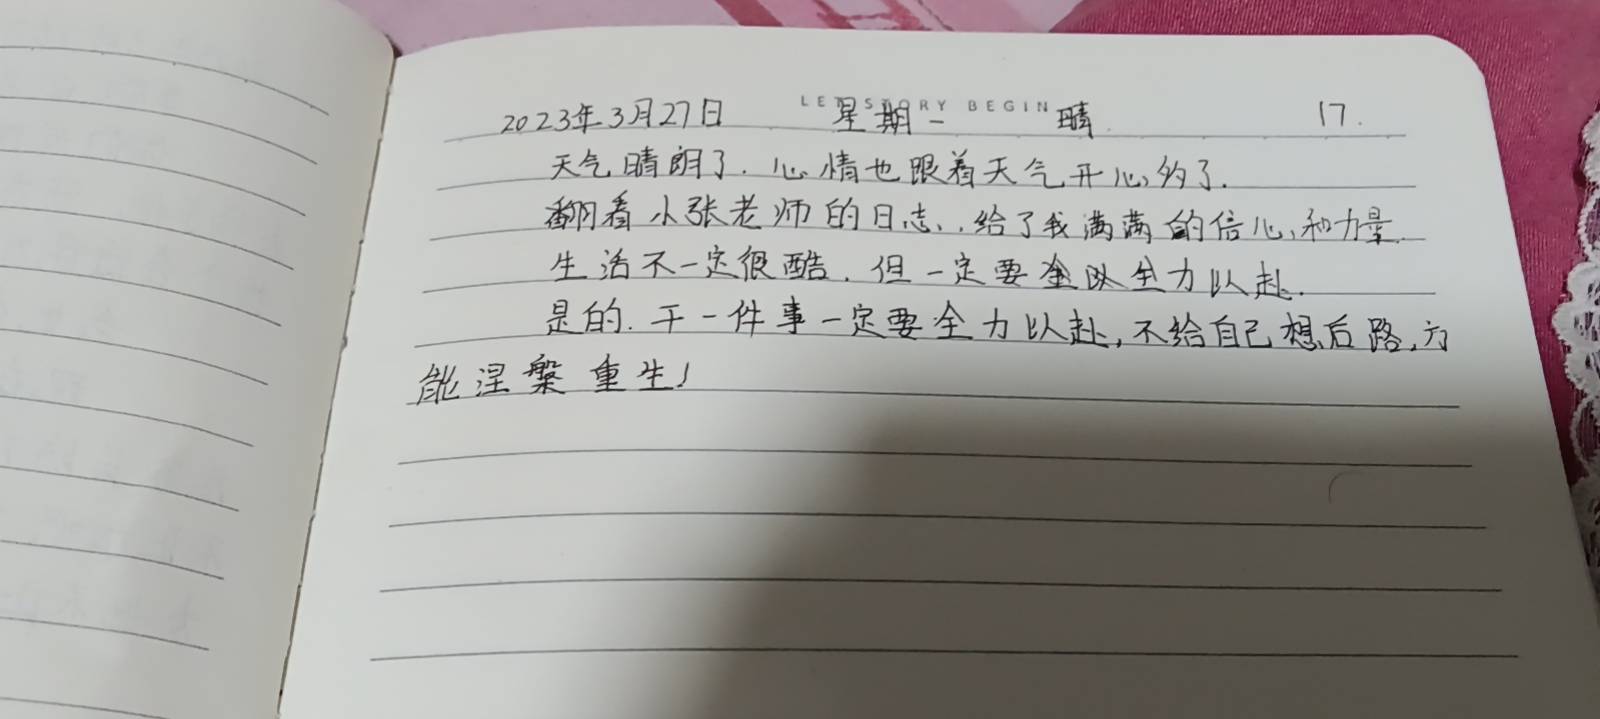 LET STORY BEGIN
2023年3月27日 星期一 晴 17.
天气晴朗了.心情也跟着天气开心约了.
翻看小张老师的日志,.给了我满满的信心,和力量.
生活不一定很酷.但一定要全以全力以赴.
是的.干一件事一定要全力以赴,不给自己想后路,方
能涅槃重生!